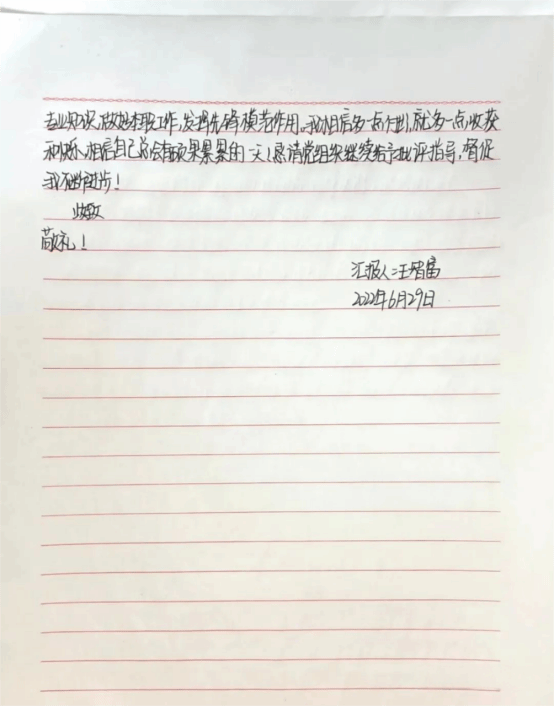 专业知识,做好本职工作,发挥先锋模范作用。我相信多一点付出,就多一点收获
和快乐,相信自己总会有硕果累累的一天!恳请党组织继续给予批评指导,督促
我不断进步!
此致
敬礼!
汇报人:汪智富
2022年6月29日